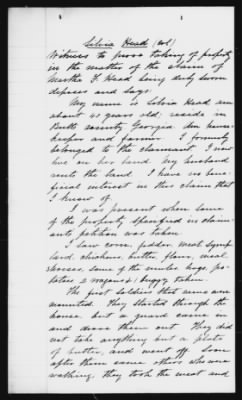 Silvia Head (col)
Witness to prove taking of property
in the matter of the claim of
Martha F. Head being duly sworn
deposes and says:
My name is Silvia Head am
about 40 years old; reside in
Butts County, Georgia. Am house
keeper and farmer. I formerly
belonged to the claimant. I now
live on her land. My husband
rents the land. I have no bene-
ficial interest in this claim that
I know of.
I was present when some
of the property specified in claim-
ants petition was taken.
I saw corn, fodder, meat, syrup
lard, chickens, butter, flour, meal,
horses, some of the mules, hogs, po-
tatoes 2 wagons, 1 buggy taken.
The first soldiers that came were
mounted. They started through the
house, but a guard came in
and drove them out. They did
not take anything but a plate
of butter, and went off. Soon
after them came others who were
walking, they took the meat and